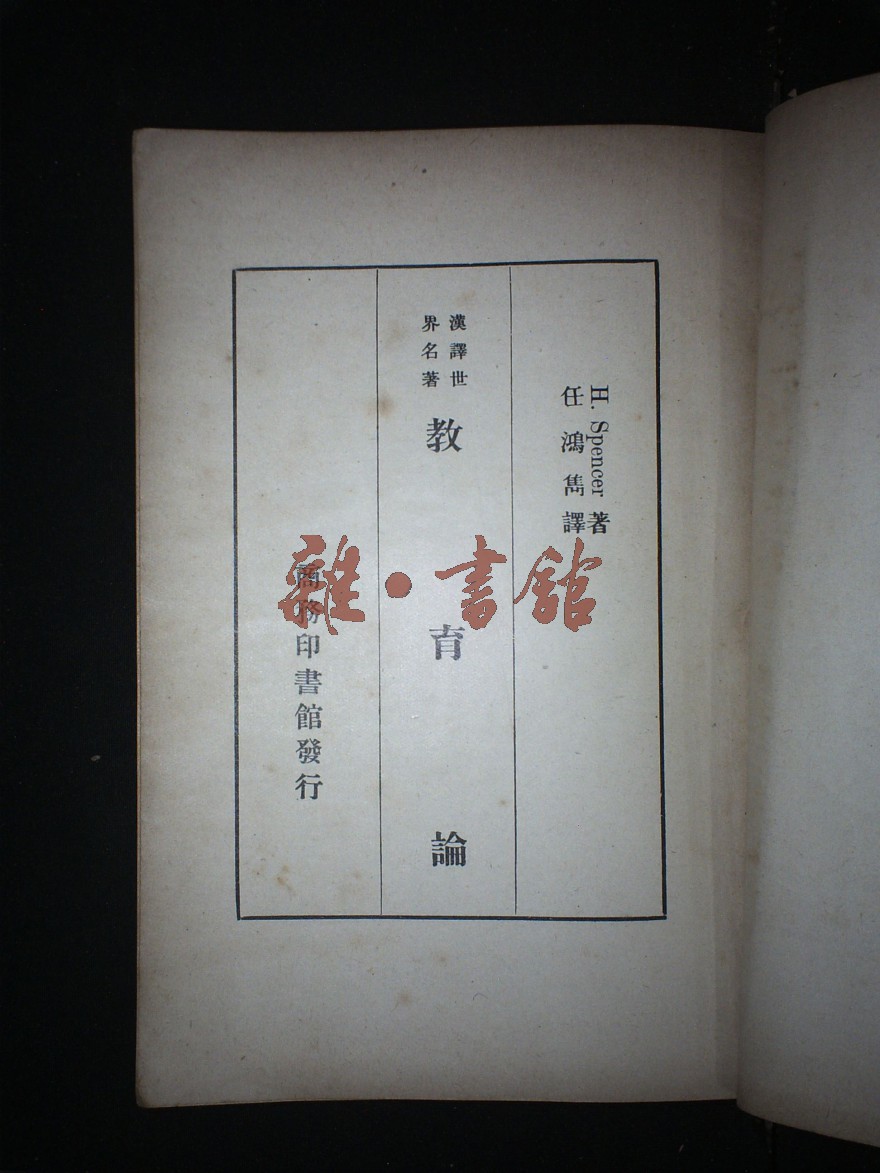 H. Spencer著
任鴻雋譯
漢譯世
界名著
教育論
商務印書館發行
雜·書館